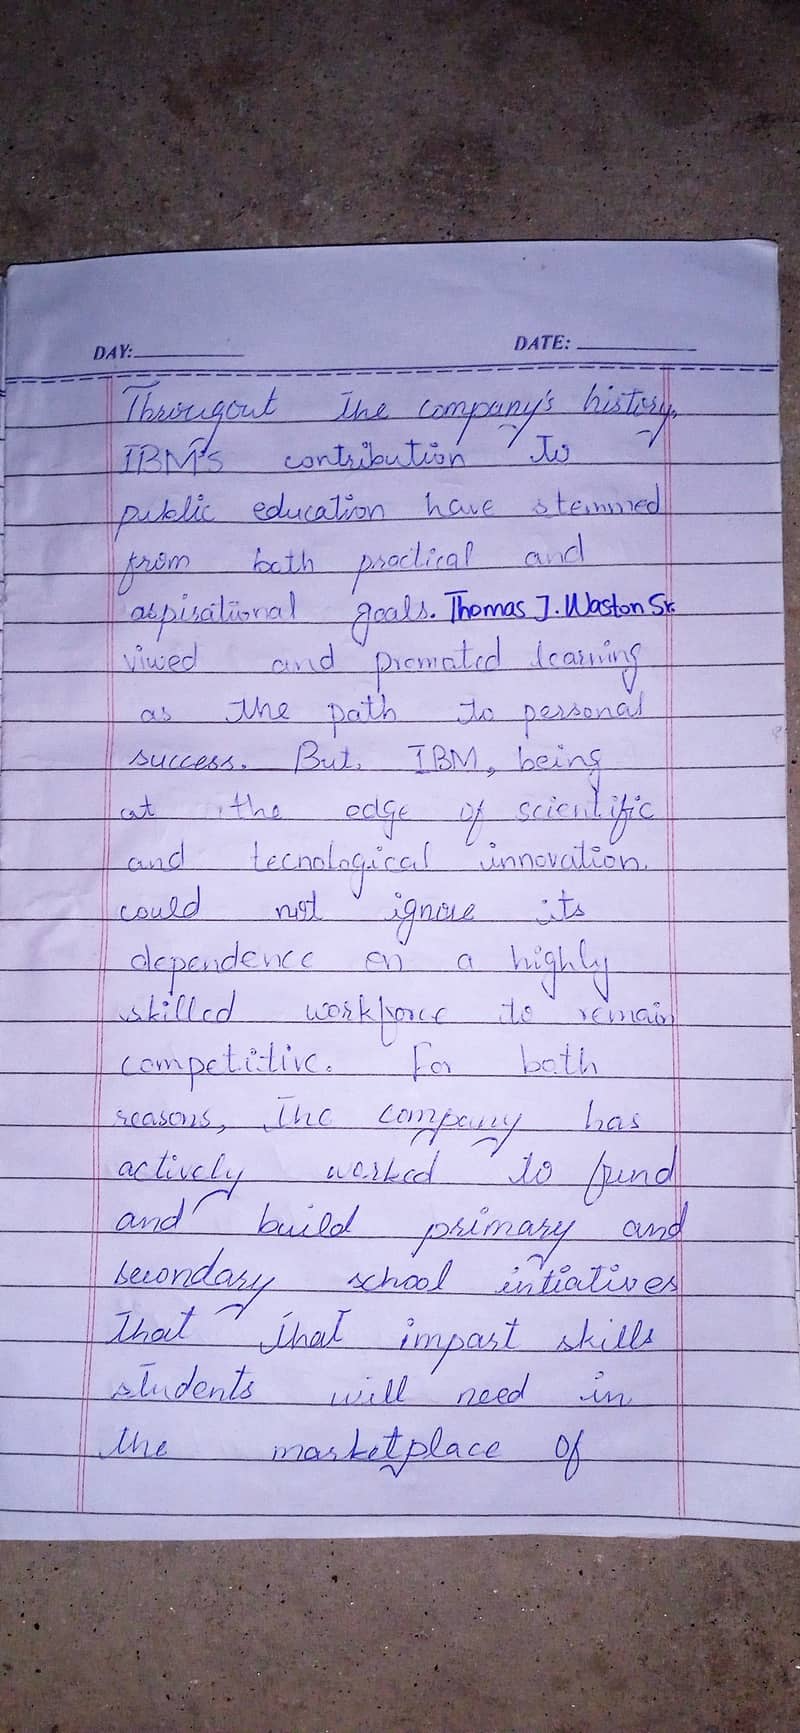 DAY:
DATE:
Througout the company's history,
IBM's contribution to
public education have stemmed
from both practical and
aspirational goals. Thomas J. Waston Sr.
viwed and promated learning
as the path to personal
success. But, IBM, being
at the edge of scientific
and tecnological innovation.
could not ignore its
dependence on a highly
skilled workforce to remain
competitive. For both
reasons, the company has
actively worked to fund
and build primary and
secondary school intiatives
that that impart skills
students will need in
the marketplace of